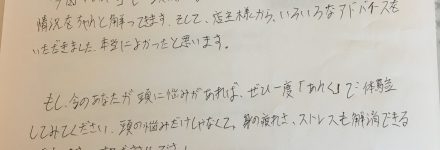 情況をちゃんと解ってきます。そして、店主様から、いろいろなアドバイスを
いただきました。本当によかったと思います。
もし、今のあなたが頭に悩みがあれば、ぜひ一度「あんく」で体験
してみてください。頭の悩みだけじゃなくて、身の疲れさ、ストレスも解消できる